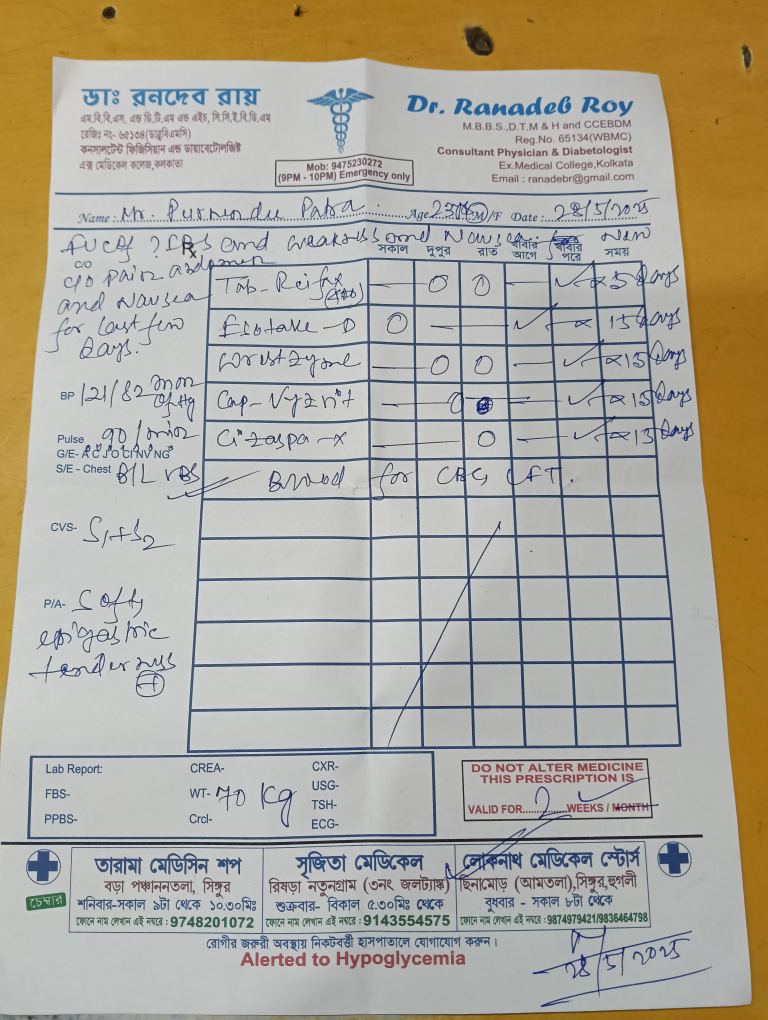 ডাঃ রনদেব রায়
এম.বি.বি.এস. এন্ড ডি.টি.এম এন্ড এইচ, সি.সি.ই.বি.ডি.এম
রেজিঃ নং- ৬৫১৩৪(ডাব্লুবিএমসি)
কনসালটেন্ট ফিজিসিয়ান এন্ড ডায়াবেটোলজিষ্ট
এক্স মেডিকেল কলেজ,কলকাতা
Mob: 9475230272
(9PM - 10PM) Emergency only
Dr. Ranadeb Roy
M.B.B.S.,D.T.M & H and CCEBDM
Reg.No. 65134(WBMC)
Consultant Physician & Diabetologist
Ex.Medical College,Kolkata
Email : ranadebr@gmail.com
Name : Mr. Purnendu Patra Age M/F Date : 28/5/2025
and weakness and Nausea
Rx
সকাল দুপুর রাত খাবার আগে খাবার পরে সময়
C/O
c/o pain abdomen
and Nausea
for last few
Days.
Tab- Reifax (400) — 0 0 — ✓ x 15 Days
Esotake-D 0 — — ✓ x 15 Days
— 0 0 — ✓ x 15 Days
Cap- Vyznit — 0 — ✓ x 15 Days
Cizaspa-x — 0 — ✓ x 15 Days
Blood for CBC, LFT.
BP 121/82 mm of Hg
Pulse 90/min
G/E-
S/E - Chest B/L VBS
CVS- S1+S2
P/A- Soft,
epigastric
tenderness
+
Lab Report:
FBS-
PPBS-
CREA-
WT- 70 kg
Crcl-
CXR-
USG-
TSH-
ECG-
DO NOT ALTER MEDICINE
THIS PRESCRIPTION IS
VALID FOR 2 WEEKS / MONTH
চেম্বার
তারামা মেডিসিন শপ
বড়া পঞ্চাননতলা, সিঙ্গুর
শনিবার-সকাল ৯টা থেকে ১০.৩০মিঃ
ফোনে নাম লেখান এই নম্বরে : 9748201072
সৃজিতা মেডিকেল
রিষড়া নতুনগ্রাম (৩নং জলট্যাঙ্ক)
শুক্রবার- বিকাল ৫.৩০মিঃ থেকে
ফোনে নাম লেখান এই নম্বরে : 9143554575
লোকনাথ মেডিকেল স্টোর্স
ছিনামোড় (আমতলা),সিঙ্গুর,হুগলী
বুধবার - সকাল ৮টা থেকে
ফোনে নাম লেখান এই নম্বরে : 9874979421/9836464798
রোগীর জরুরী অবস্থায় নিকটবর্ত্তী হাসপাতালে যোগাযোগ করুন।
Alerted to Hypoglycemia
28/5/2025